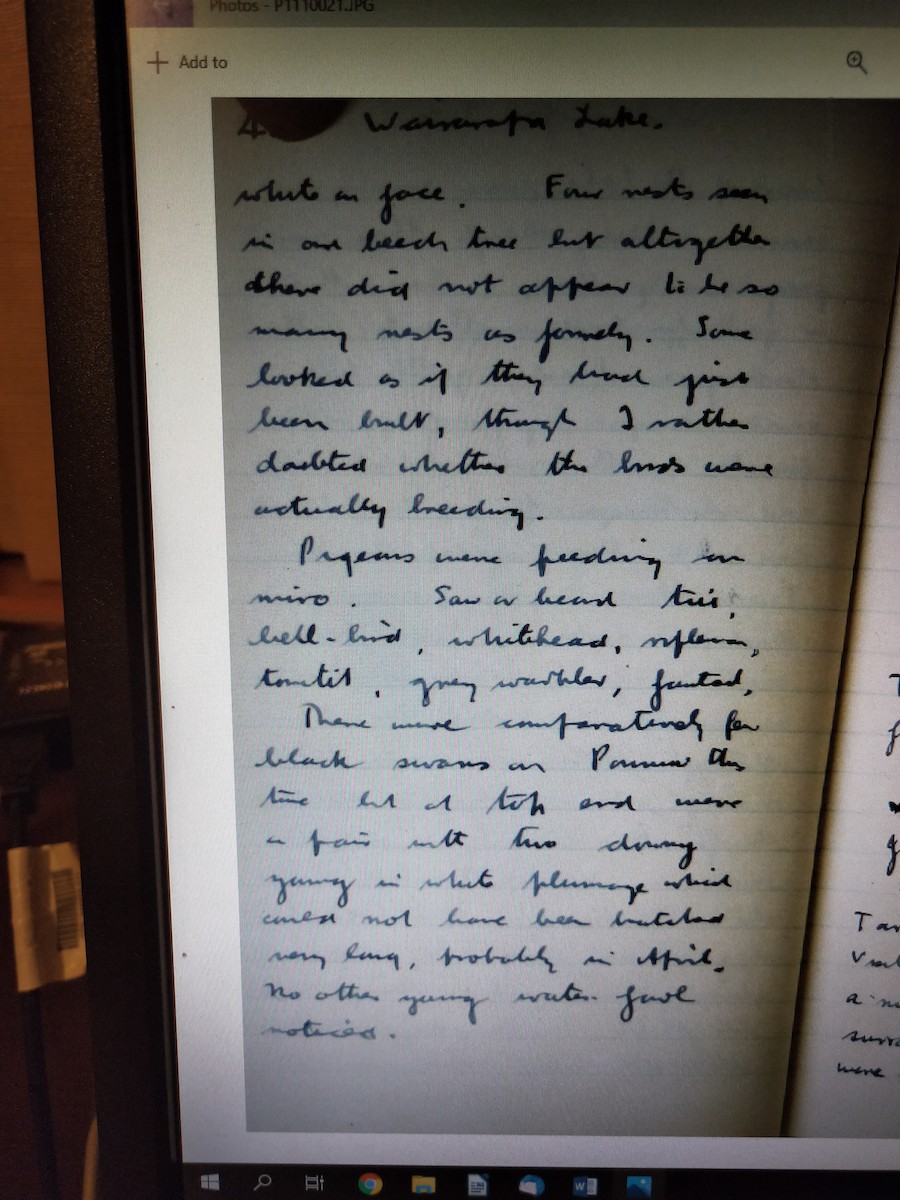 Photos - P1110021.JPG
+ Add to
4 Wairarapa Lake.
white on face. Four nests seen
in one beech tree but altogether
there did not appear to be so
many nests as formely. Some
looked as if they had just
been built, though I rather
doubted whether the birds were
actually breeding.
Pigeons were feeding on
miro. Saw or heard tui,
bell-bird, whitehead, rifleman,
tomtit, grey warbler, fantail,
There were comparatively few
black swans on Pounui this
time but at top end were
a pair with two downy
young in white plumage which
could not have been hatched
very long, probably in April.
No other young water-fowl
noticed.
T
f
g
Tar
a
were